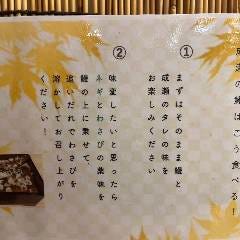 の鰻はこう食べる!
①
まずはそのまま鰻と
成瀬のタレの味を
お楽しみください
②
味変したいと思ったら
ネギとわさびの薬味を
鰻の上に乗せて、
追いだれでわさびを
溶かしてお召し上がり
ください!